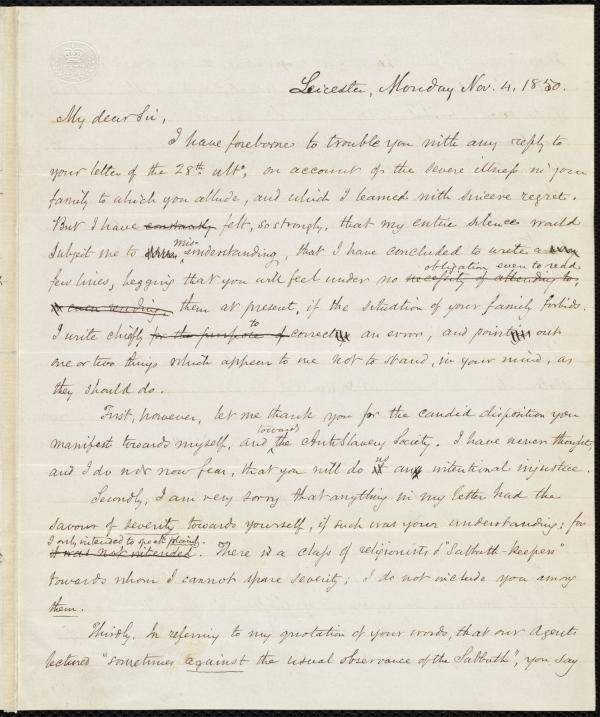 Leicester, Monday Nov. 4, 1850.
My dear Sir,
I have foreborne to trouble you with any reply to
your letter of the 28th ulto, on account of the severe illness in your
family to which you allude, and which I learned with sincere regret.
But I have constantly felt, so strongly, that my entire silence would
subject me to mis-understanding, that I have concluded to write a very
few lines, begging that you will feel under no necessity of attending to, obligation even to read
or even reading, them at present, if the situation of your family forbids.
I write chiefly for the purpose of to correcting an error, and pointing out
one or two things which appear to me not to stand, in your mind, as
they should do.
First, however, let me thank you for the candid disposition you
manifest towards myself, and towards the Anti Slavery Society. I have never thought,
and I do not now fear, that you will do us any intentional injustice.
Secondly, I am very sorry that anything in my letter had the
savour of severity towards yourself, if such was your understanding; for
I only intended to speak plainly. it was not intended. There is a class of religionists & "Sabbath-keepers"
towards whom I cannot spare severity; I do not include you among
them.
Thirdly. In referring to my quotation of your words, that our Agents
lectured "sometimes against the usual observance of the Sabbath", you say